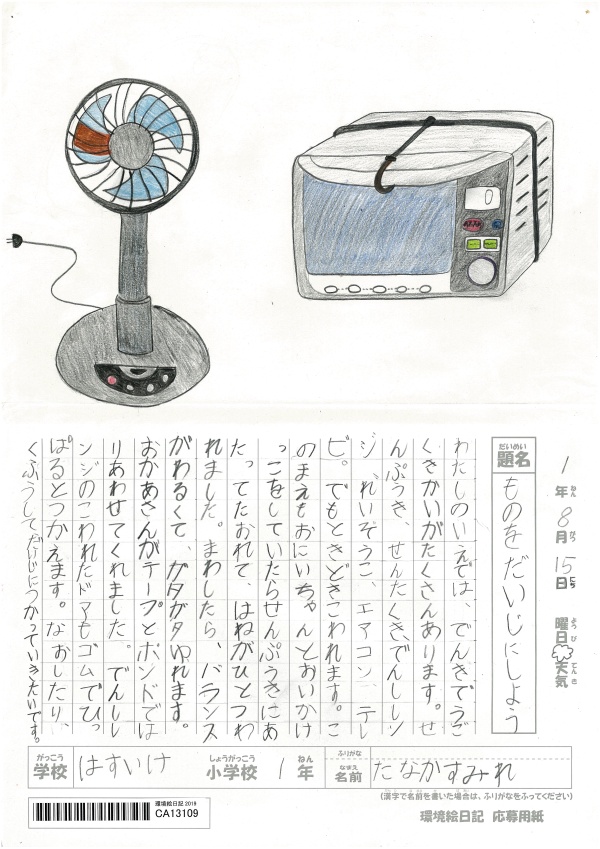 1年8月15日 曜日 天気
ねん がつ にち ようび てんき
だいめい
題名 ものをだいじにしよう
わたしのいえでは、でんきでうご
くきかいがたくさんあります。せ
んぷうき、せんたくき、でんしレン
ジ、れいぞうこ、エアコン、テレ
ビ。でもときどきこわれます。こ
のまえもおにいちゃんとおいかけ
っこをしていたらせんぷうきにあ
たってたおれて、はねがひとつわ
れました。まわしたら、バランス
がわるくて、ガタガタゆれます。
おかあさんがテープとボンドでは
りあわせてくれました。でんしレ
ンジのこわれたドアもゴムでひっ
ぱるとつかえます。なおしたり、
くふうしてだいじにつかっていきたいです。
がっこう しょうがっこう ねん ふりがな
学校 はすいけ 小学校 1年
なまえ
名前 たなかすみれ
(漢字で名前を書いた場合は、ふりがなをふってください)
環境絵日記 応募用紙
環境絵日記 2018
CA13109
0